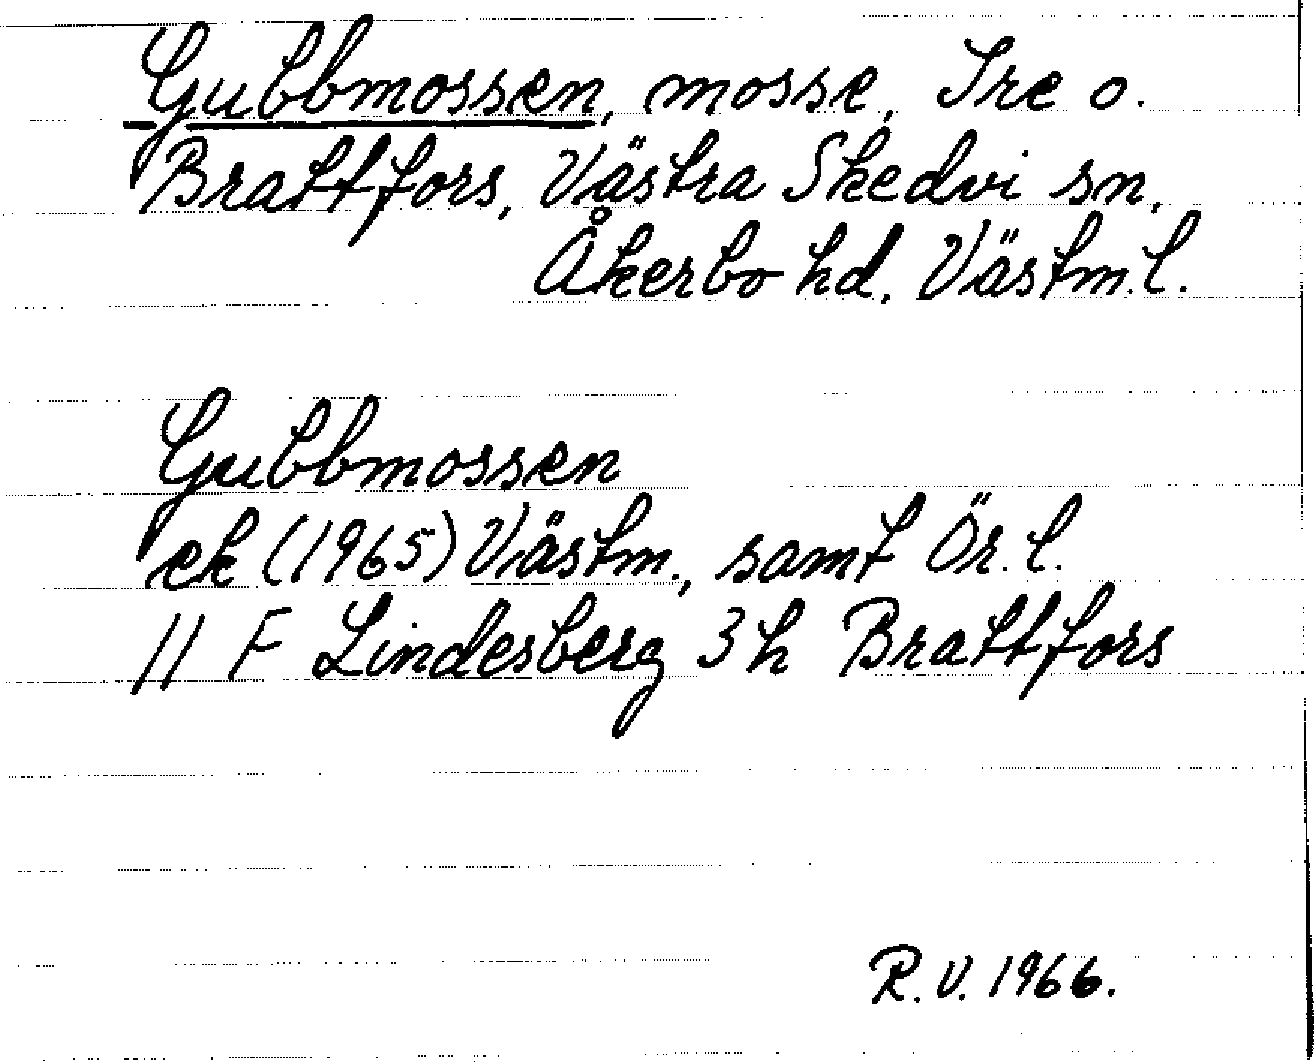 Gubbmossen, mosse, Tre o.
Brattfors, Västra Skedvi sn,
Åkerbo hd, Västm.l.
Gubbmossen
ek (1965) Västm., samt Ör. l.
11 F Lindesberg 3 h Brattfors
R.V. 1966.